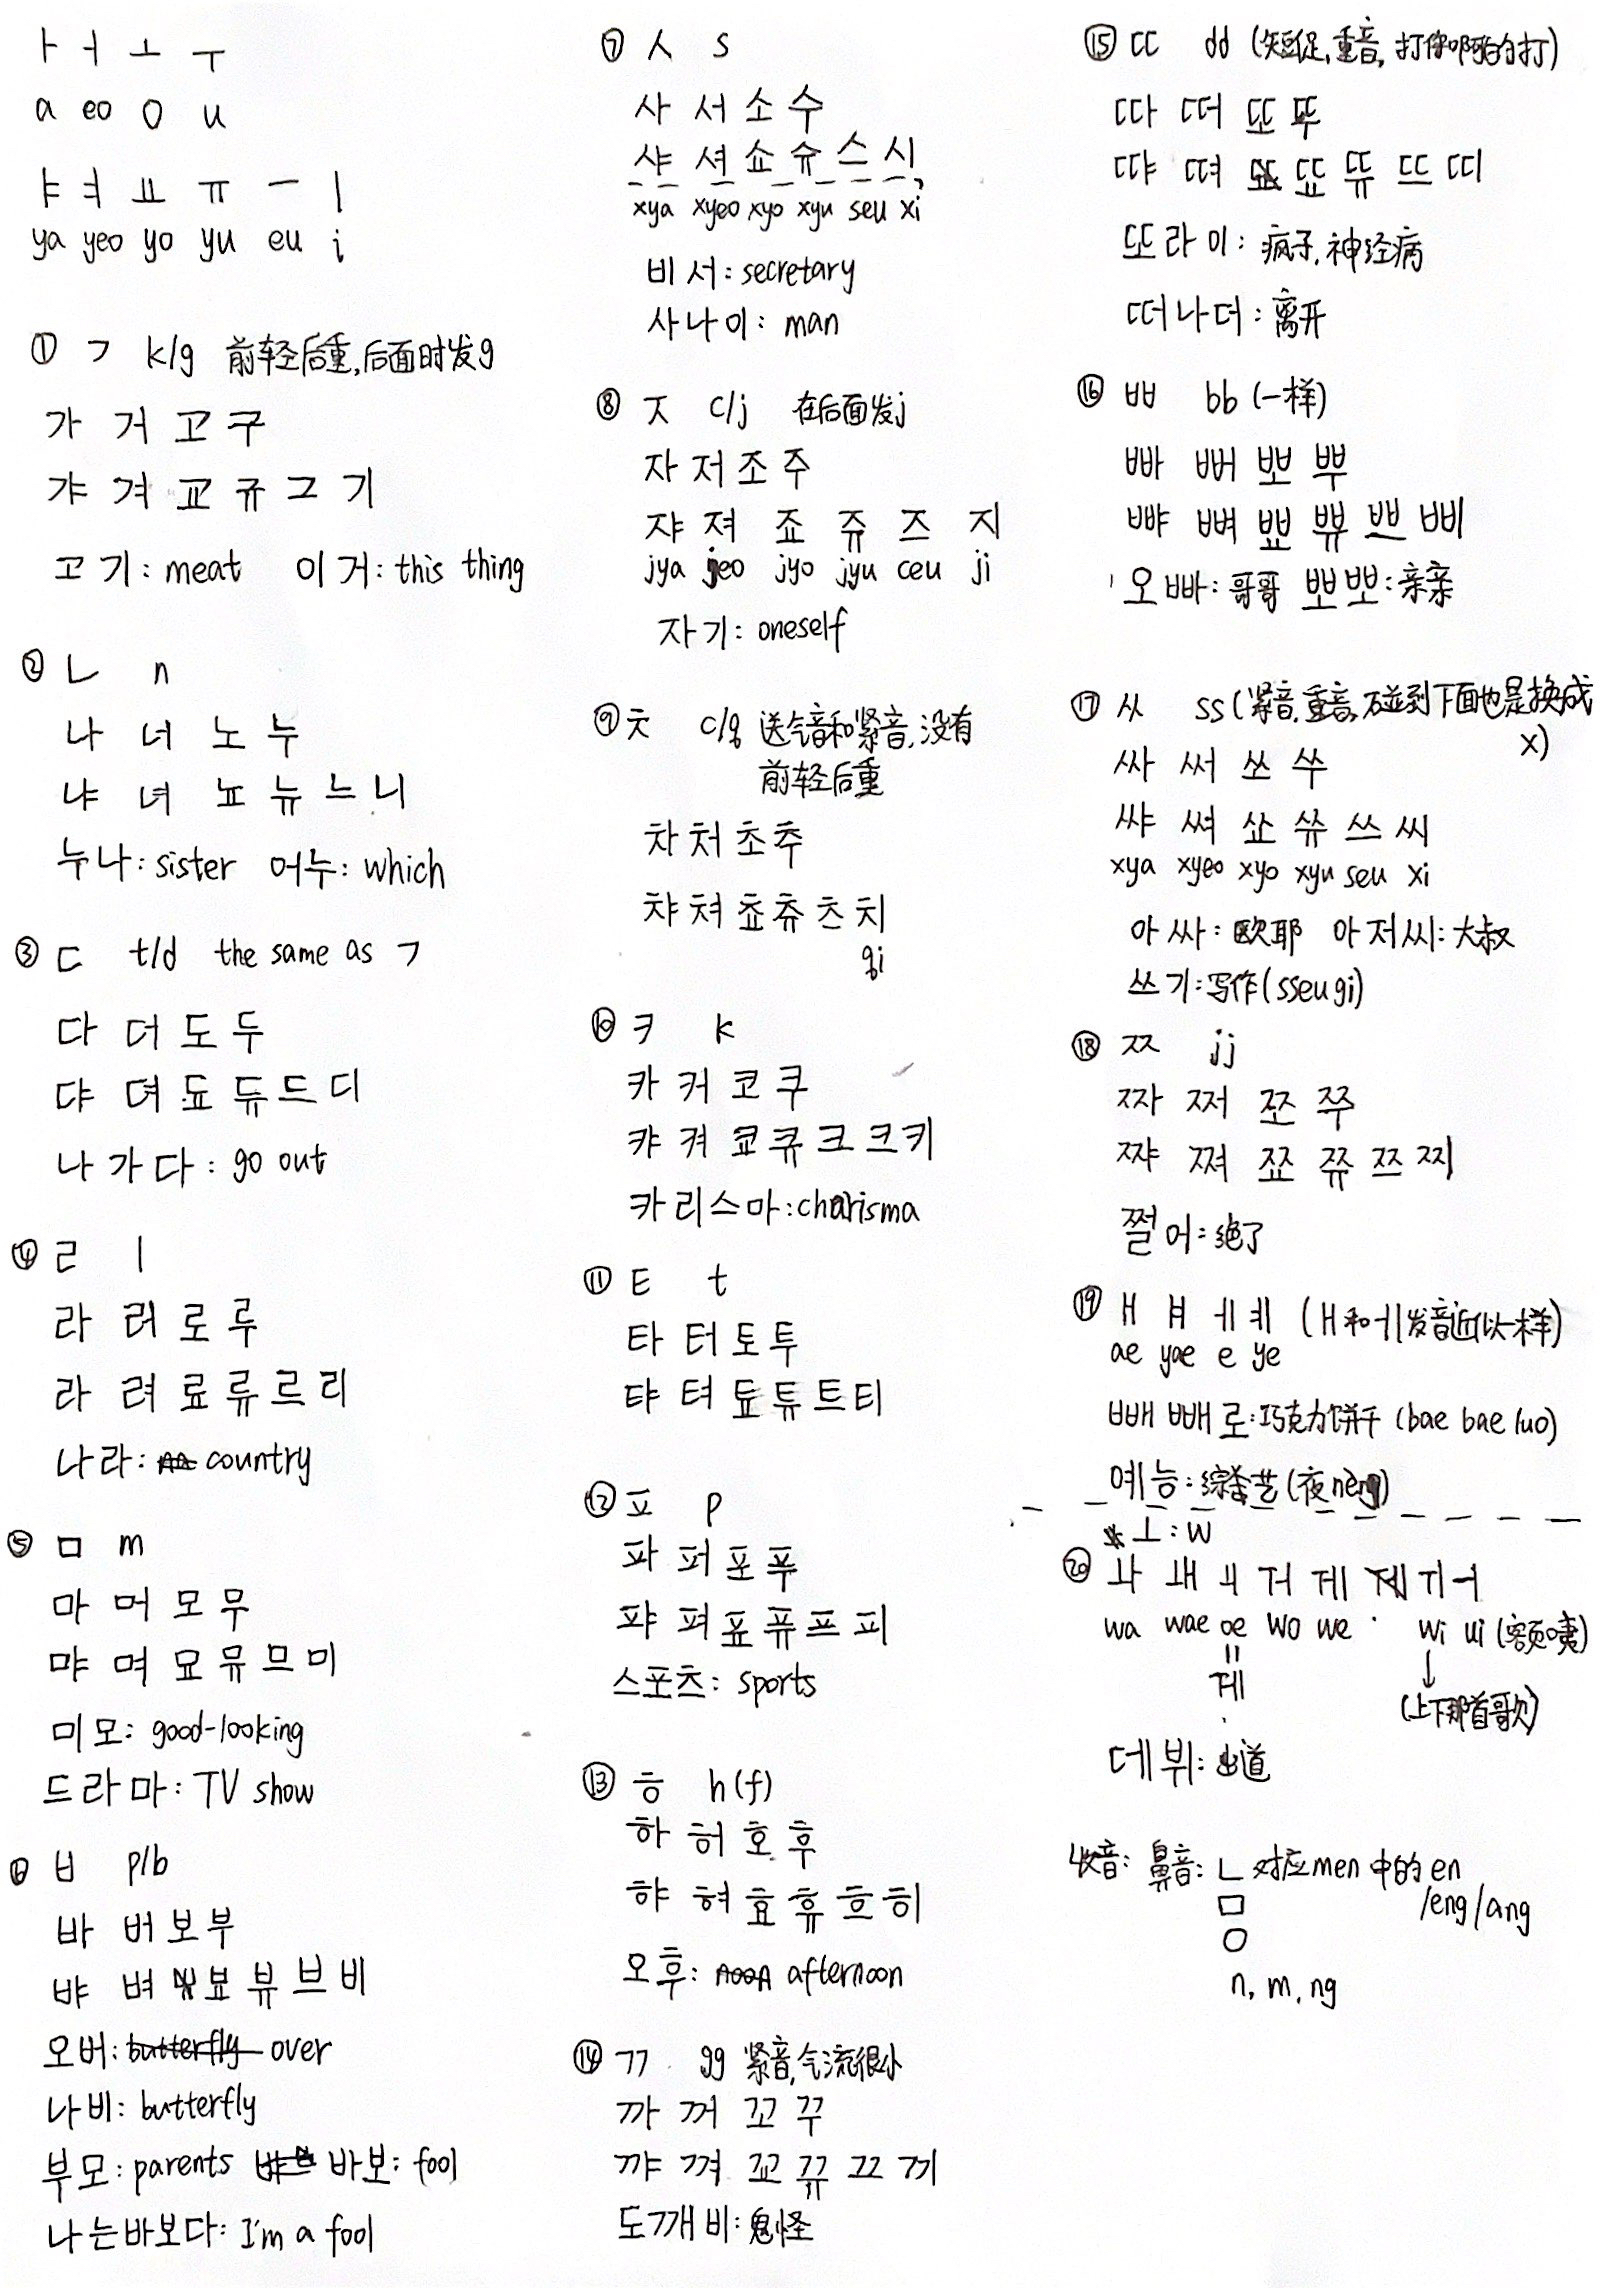 ㅏ ㅓ ㅗ ㅜ
a eo o u
ㅑ ㅕ ㅛ ㅠ ㅡ ㅣ
ya yeo yo yu eu i
① ㄱ k/g 前轻后重,后面时发g
가 거 고 구
갸 겨 교 규 그 기
고기: meat 이거: this thing
② ㄴ n
나 너 노 누
냐 녀 뇨 뉴 느 니
누나: sister 어누: which
③ ㄷ t/d the same as ㄱ
다 더 도 두
댜 뎌 됴 듀 드 디
나가다: go out
④ ㄹ l
라 러 로 루
랴 려 료 류 르 리
나라: country
⑤ ㅁ m
마 머 모 무
먀 며 묘 뮤 므 미
미모: good-looking
드라마: TV show
⑥ ㅂ p/b
바 버 보 부
뱌 벼 뵤 뷰 브 비
오버: butterfly over
나비: butterfly
부모: parents 바보: fool
나는바보다: I'm a fool
⑦ ㅅ s
사 서 소 수
샤 셔 쇼 슈 스 시
xya xyeo xyo xyu seu xi
비서: secretary
사나이: man
⑧ ㅈ c/j 在后面发j
자 저 조 주
쟈 져 죠 쥬 즈 지
jya jeo jyo jyu ceu ji
자기: oneself
⑨ ㅊ c/q 送气音和紧音,没有
前轻后重
차 처 초 추
챠 쳐 쵸 츄 츠 치
qi
⑩ ㅋ k
카 커 코 쿠
캬 켜 쿄 큐 크 크 키
카리스마: charisma
⑪ ㅌ t
타 터 토 투
탸 텨 툐 튜 트 티
⑫ ㅍ p
파 퍼 포 푸
퍄 펴 표 퓨 프 피
스포츠: sports
⑬ ㅎ h(f)
하 허 호 후
햐 혀 효 휴 흐 히
오후: afternoon
⑭ ㄲ gg 紧音,气流很小
까 꺼 꼬 꾸
꺄 껴 꼬 뀨 끄 끼
도깨비: 鬼怪
⑮ ㄸ dd (短促,重音,打你啊的打)
따 떠 또 뚜
땨 뗘 뚀 뜌 뜨 띠
또라이: 疯子,神经病
떠나더: 离开
⑯ ㅃ bb (一样)
빠 뻐 뽀 뿌
뺘 뼈 뾰 쀼 쁘 삐
오빠: 哥哥 뽀뽀: 亲亲
⑰ ㅆ ss (紧音,重音,碰到下面也是换成
x)
싸 써 쏘 쑤
쌰 쎠 쑈 쓔 쓰 씨
xya xyeo xyo xyu seu xi
아싸: 欧耶 아저씨: 大叔
쓰기: 写作(sseugi)
⑱ ㅉ jj
짜 쩌 쪼 쭈
쨔 쪄 쬬 쮸 쯔 찌
쩔어: 绝了
⑲ ㅐ ㅒ ㅔ ㅖ (ㅐ和ㅔ发音近似一样)
ae yae e ye
빼빼로: 巧克力饼干 (bae bae luo)
예능: 综艺 (夜neng)
ㅗ: w
⑳ ㅘ ㅙ ㅚ ㅝ ㅞ ㅟ ㅢ
wa wae oe wo we wi ui (额咦)
=
ㅞ
↓
(上下那首歌)
데뷔: 出道
收音: 鼻音: ㄴ 对应men中的en
ㅁ /eng/ang
ㅇ
n, m, ng